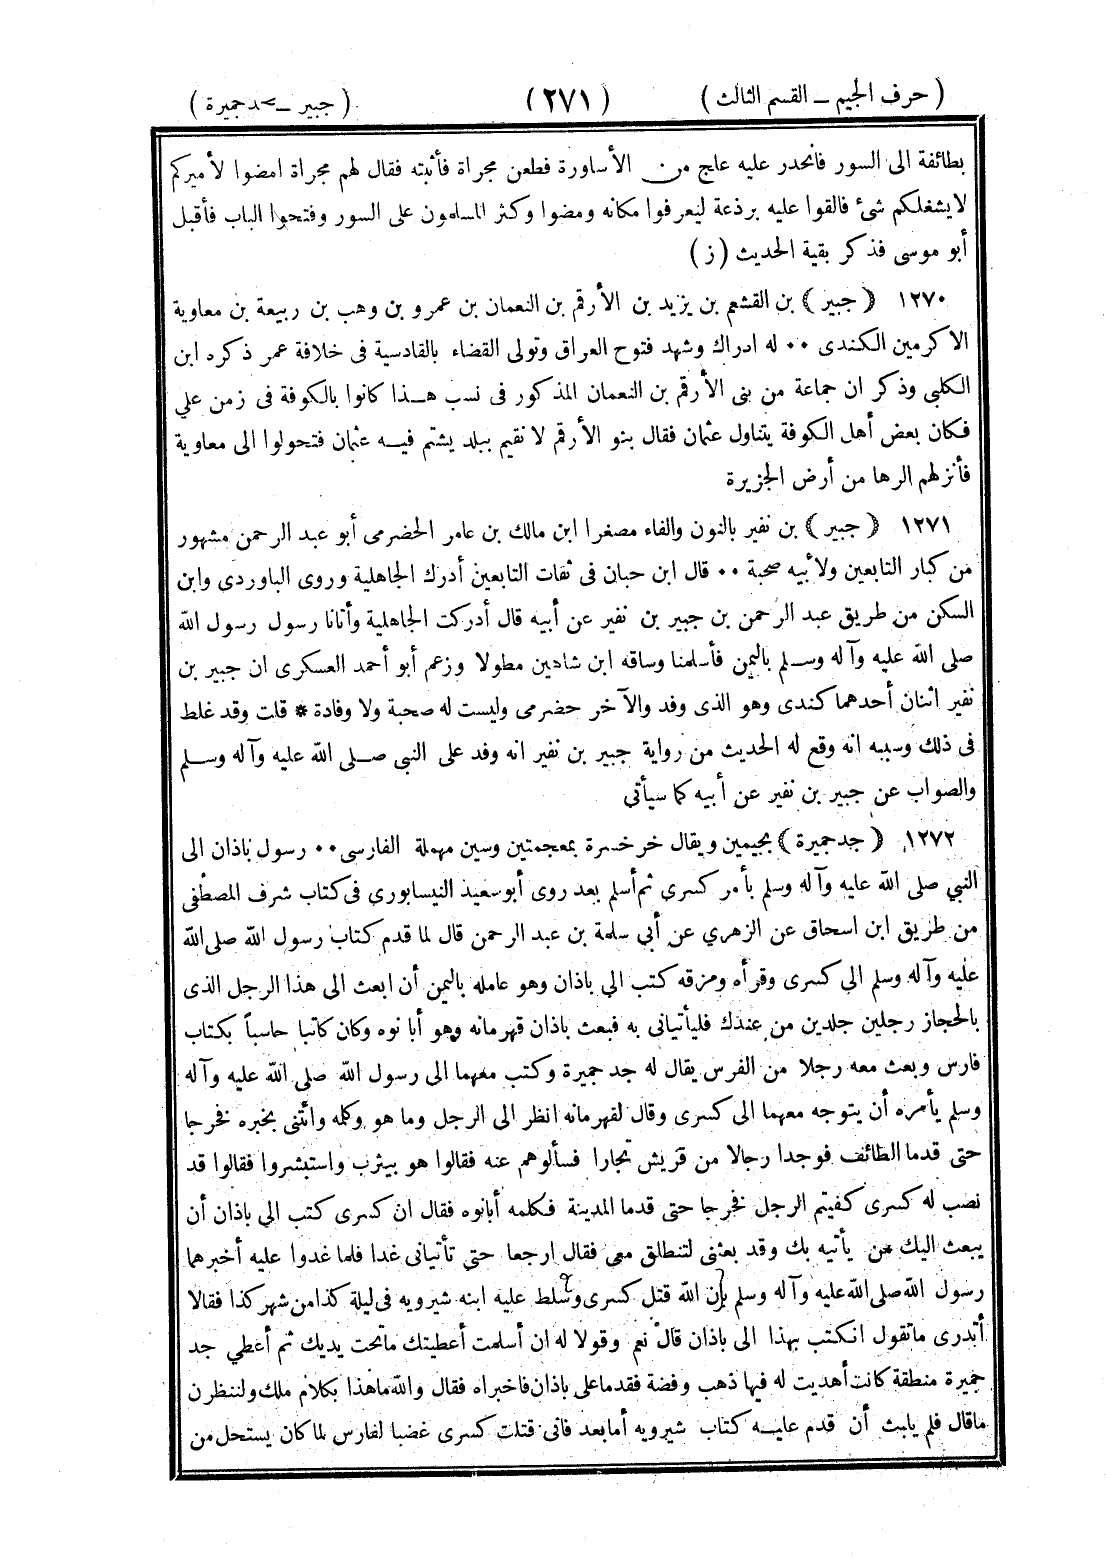 ( حرف الجيم – القسم الثالث )
( ٢٧١ )
( جبير – جد جميرة )
بطائفة الى السور فانحدر عليه علج من الأساورة فطعن مجراة فأثبته فقال لهم مجراة امضوا لأميركم
لا يشغلكم شئ فالقوا عليه برذعة ليعرفوا مكانه ومضوا وكثر المسلمون على السور وفتحوا الباب فأقبل
أبو موسى فذكر بقية الحديث ( ز )
١٢٧٠ ( جبير ) بن القشعم بن يزيد بن الأرقم بن النعمان بن عمرو بن وهب بن ربيعة بن معاوية
الاكرمين الكندى ٠٠ له ادراك وشهد فتوح العراق وتولى القضاء بالقادسية فى خلافة عمر ذكره ابن
الكلبي وذكر ان جماعة من بنى الأرقم بن النعمان المذكور فى نسب هذا كانوا بالكوفة فى زمن علي
فكان بعض أهل الكوفة يتناول عثمان فقال بنو الأرقم لا نقيم ببلد يشتم فيه عثمان فتحولوا الى معاوية
فأنزلهم الرها من أرض الجزيرة
١٢٧١ ( جبير ) بن نفير بالنون والفاء مصغرا ابن مالك بن عامر الحضرمى أبو عبد الرحمن مشهور
من كبار التابعين ولأبيه صحبة ٠٠ قال ابن حبان فى ثقات التابعين أدرك الجاهلية وروى الباوردى وابن
السكن من طريق عبد الرحمن بن جبير بن نفير عن أبيه قال أدركت الجاهلية وأتانا رسول رسول الله
صلى الله عليه وآله وسلم باليمن فأسلمنا وساقه ابن شاهين مطولا وزعم أبو أحمد العسكرى ان جبير بن
نفير اثنان أحدهما كندى وهو الذى وفد والآخر حضرمى وليست له صحبة ولا وفادة * قلت وقد غلط
فى ذلك وسببه انه وقع له الحديث من رواية جبير بن نفير انه وفد على النبي صلى الله عليه وآله وسلم
والصواب عن جبير بن نفير عن أبيه كما سيأتى
١٢٧٢ ( جدجميرة ) بجيمين ويقال خرخسرة بمعجمتين وسين مهملة الفارسى ٠٠ رسول باذان الى
النبي صلى الله عليه وآله وسلم بأمر كسرى ثم أسلم بعد روى أبو سعيد النيسابوري فى كتاب شرف المصطفى
من طريق ابن اسحاق عن الزهري عن أبي سلمة بن عبد الرحمن قال لما قدم كتاب رسول الله صلى الله
عليه وآله وسلم الي كسرى وقرأه ومزقه كتب الي باذان وهو عامله باليمن أن ابعث الى هذا الرجل الذى
بالحجاز رجلين جلدين من عندك فليأتيانى به فبعث باذان قهرمانه وهو أبا نوه وكان كاتبا حاسباً بكتاب
فارس وبعث معه رجلا من الفرس يقال له جد جميرة وكتب معهما الى رسول الله صلى الله عليه وآله
وسلم يأمره أن يتوجه معهما الى كسرى وقال لقهرمانه انظر الى الرجل وما هو وكلمه وائتنى بخبره فخرجا
حتى قدما الطائف فوجدا رجالا من قريش تجارا فسألوهم عنه فقالوا هو بيثرب واستبشروا فقالوا قد
نصب له كسرى كفيتم الرجل فخرجا حتى قدما المدينة فكلمه أبانوه فقال ان كسرى كتب الي باذان أن
يبعث اليك من يأتيه بك وقد بعثنى لتنطلق معى فقال ارجعا حتى تأتيانى غدا فلما غدوا عليه أخبرهما
رسول الله صلى الله عليه وآله وسلم بإن الله قتل كسرى وسلط عليه ابنه شيرويه فى ليلة كذا من شهر كذا فقالا
أتدرى ماتقول انكتب بهذا الى باذان قال نعم وقولا له ان أسلمت أعطيتك ماتحت يديك ثم أعطي جد
جميرة منطقة كانت أهديت له فيها ذهب وفضة فقدما على باذان فاخبراه فقال والله ماهذا بكلام ملك ولننظرن
ماقال فلم يلبث أن قدم عليه كتاب شيرويه أما بعد فانى قتلت كسرى غضبا لفارس لما كان يستحل من